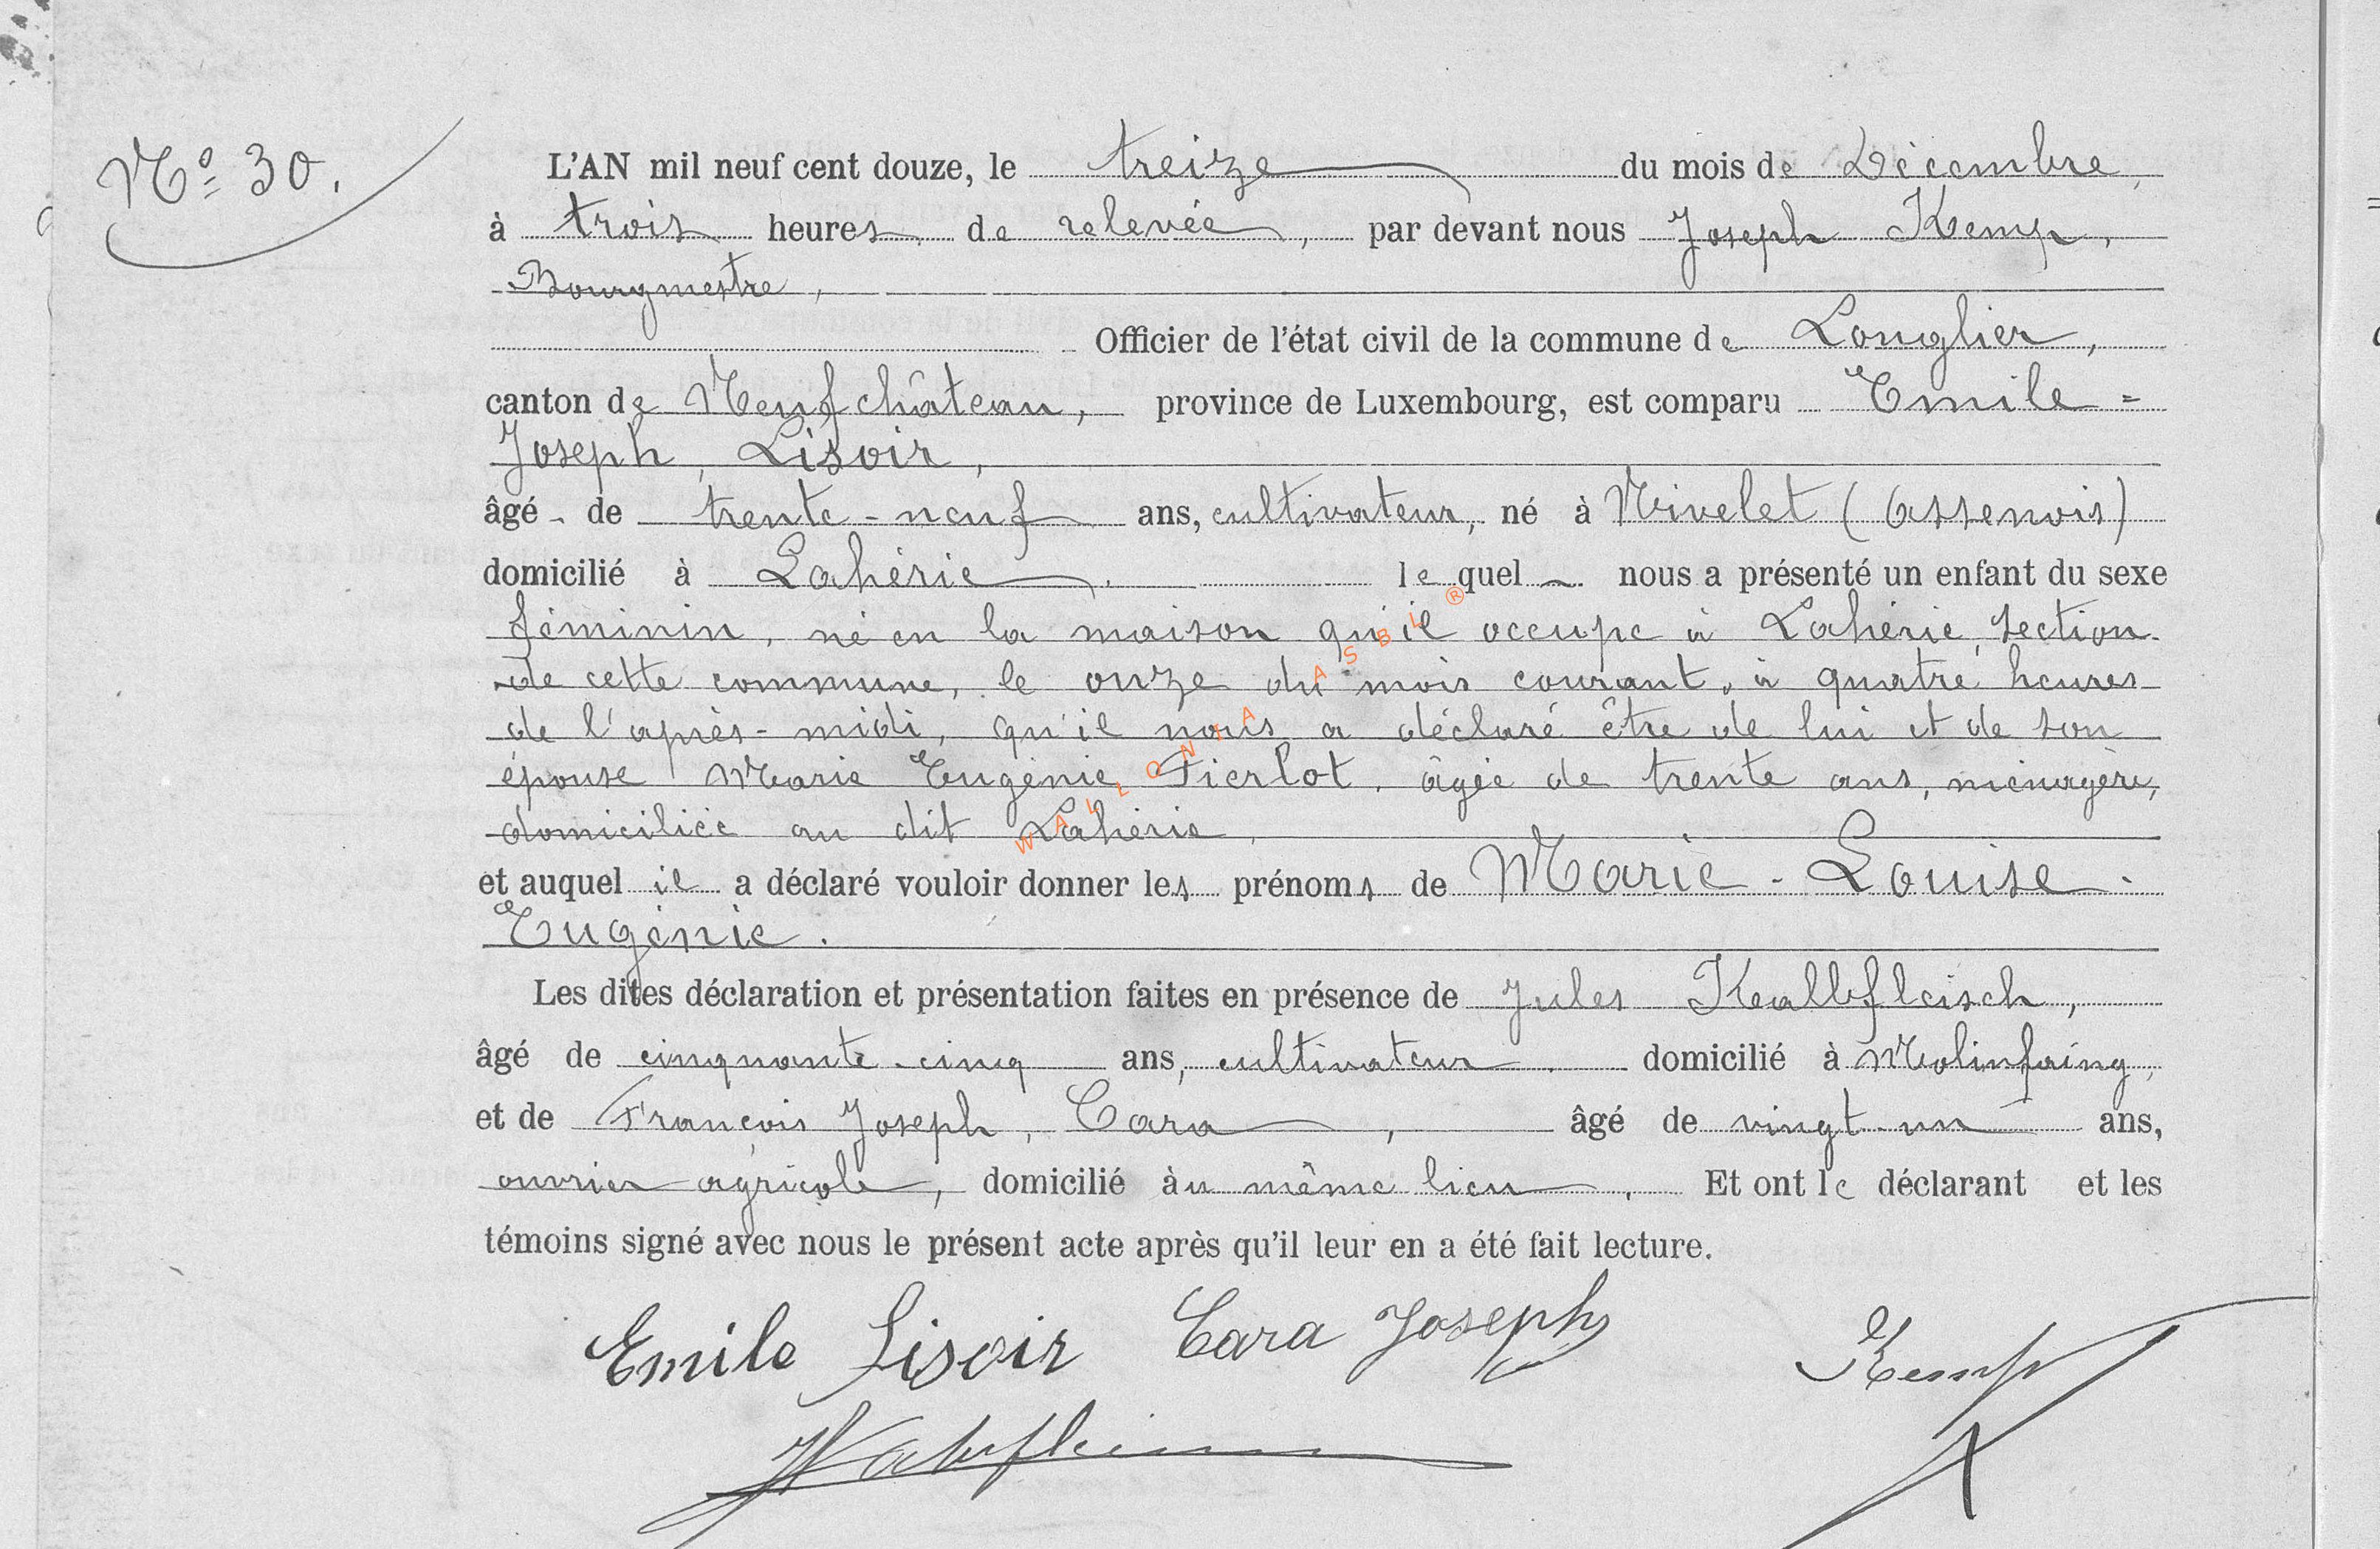 Nº 30.
L'AN mil neuf cent douze, le treize du mois de Décembre,
à trois heures de relevée, par devant nous Joseph Kemp,
Bourgmestre,
Officier de l'état civil de la commune de Longlier,
canton de Neufchâteau, province de Luxembourg, est comparu Emile=
Joseph, Lisoir,
âgé de trente-neuf ans, cultivateur, né à Nivelet (Assenois)
domicilié à Lahérie. lequel nous a présenté un enfant du sexe
féminin, né en la maison qu'il occupe à Lahérie, section
de cette commune, le onze du mois courant, à quatre heures
de l'après-midi, qu'il nous a déclaré être de lui et de son
épouse Marie Eugénie Pierlot, âgée de trente ans, ménagère,
domiciliée au dit Lahérie,
et auquel il a déclaré vouloir donner les prénoms de Marie-Louise-
Eugénie.
Les dites déclaration et présentation faites en présence de Jules Kalbfleisch,
âgé de cinquante-cinq ans, cultivateur. domicilié à Molinfaing,
et de François Joseph, Cara, âgé de vingt-un ans,
ouvrier agricole, domicilié au même lieu. Et ont le déclarant et les
témoins signé avec nous le présent acte après qu'il leur en a été fait lecture.
Emile Lisoir Cara Joseph Kemp
WALLONIA ASBL ®